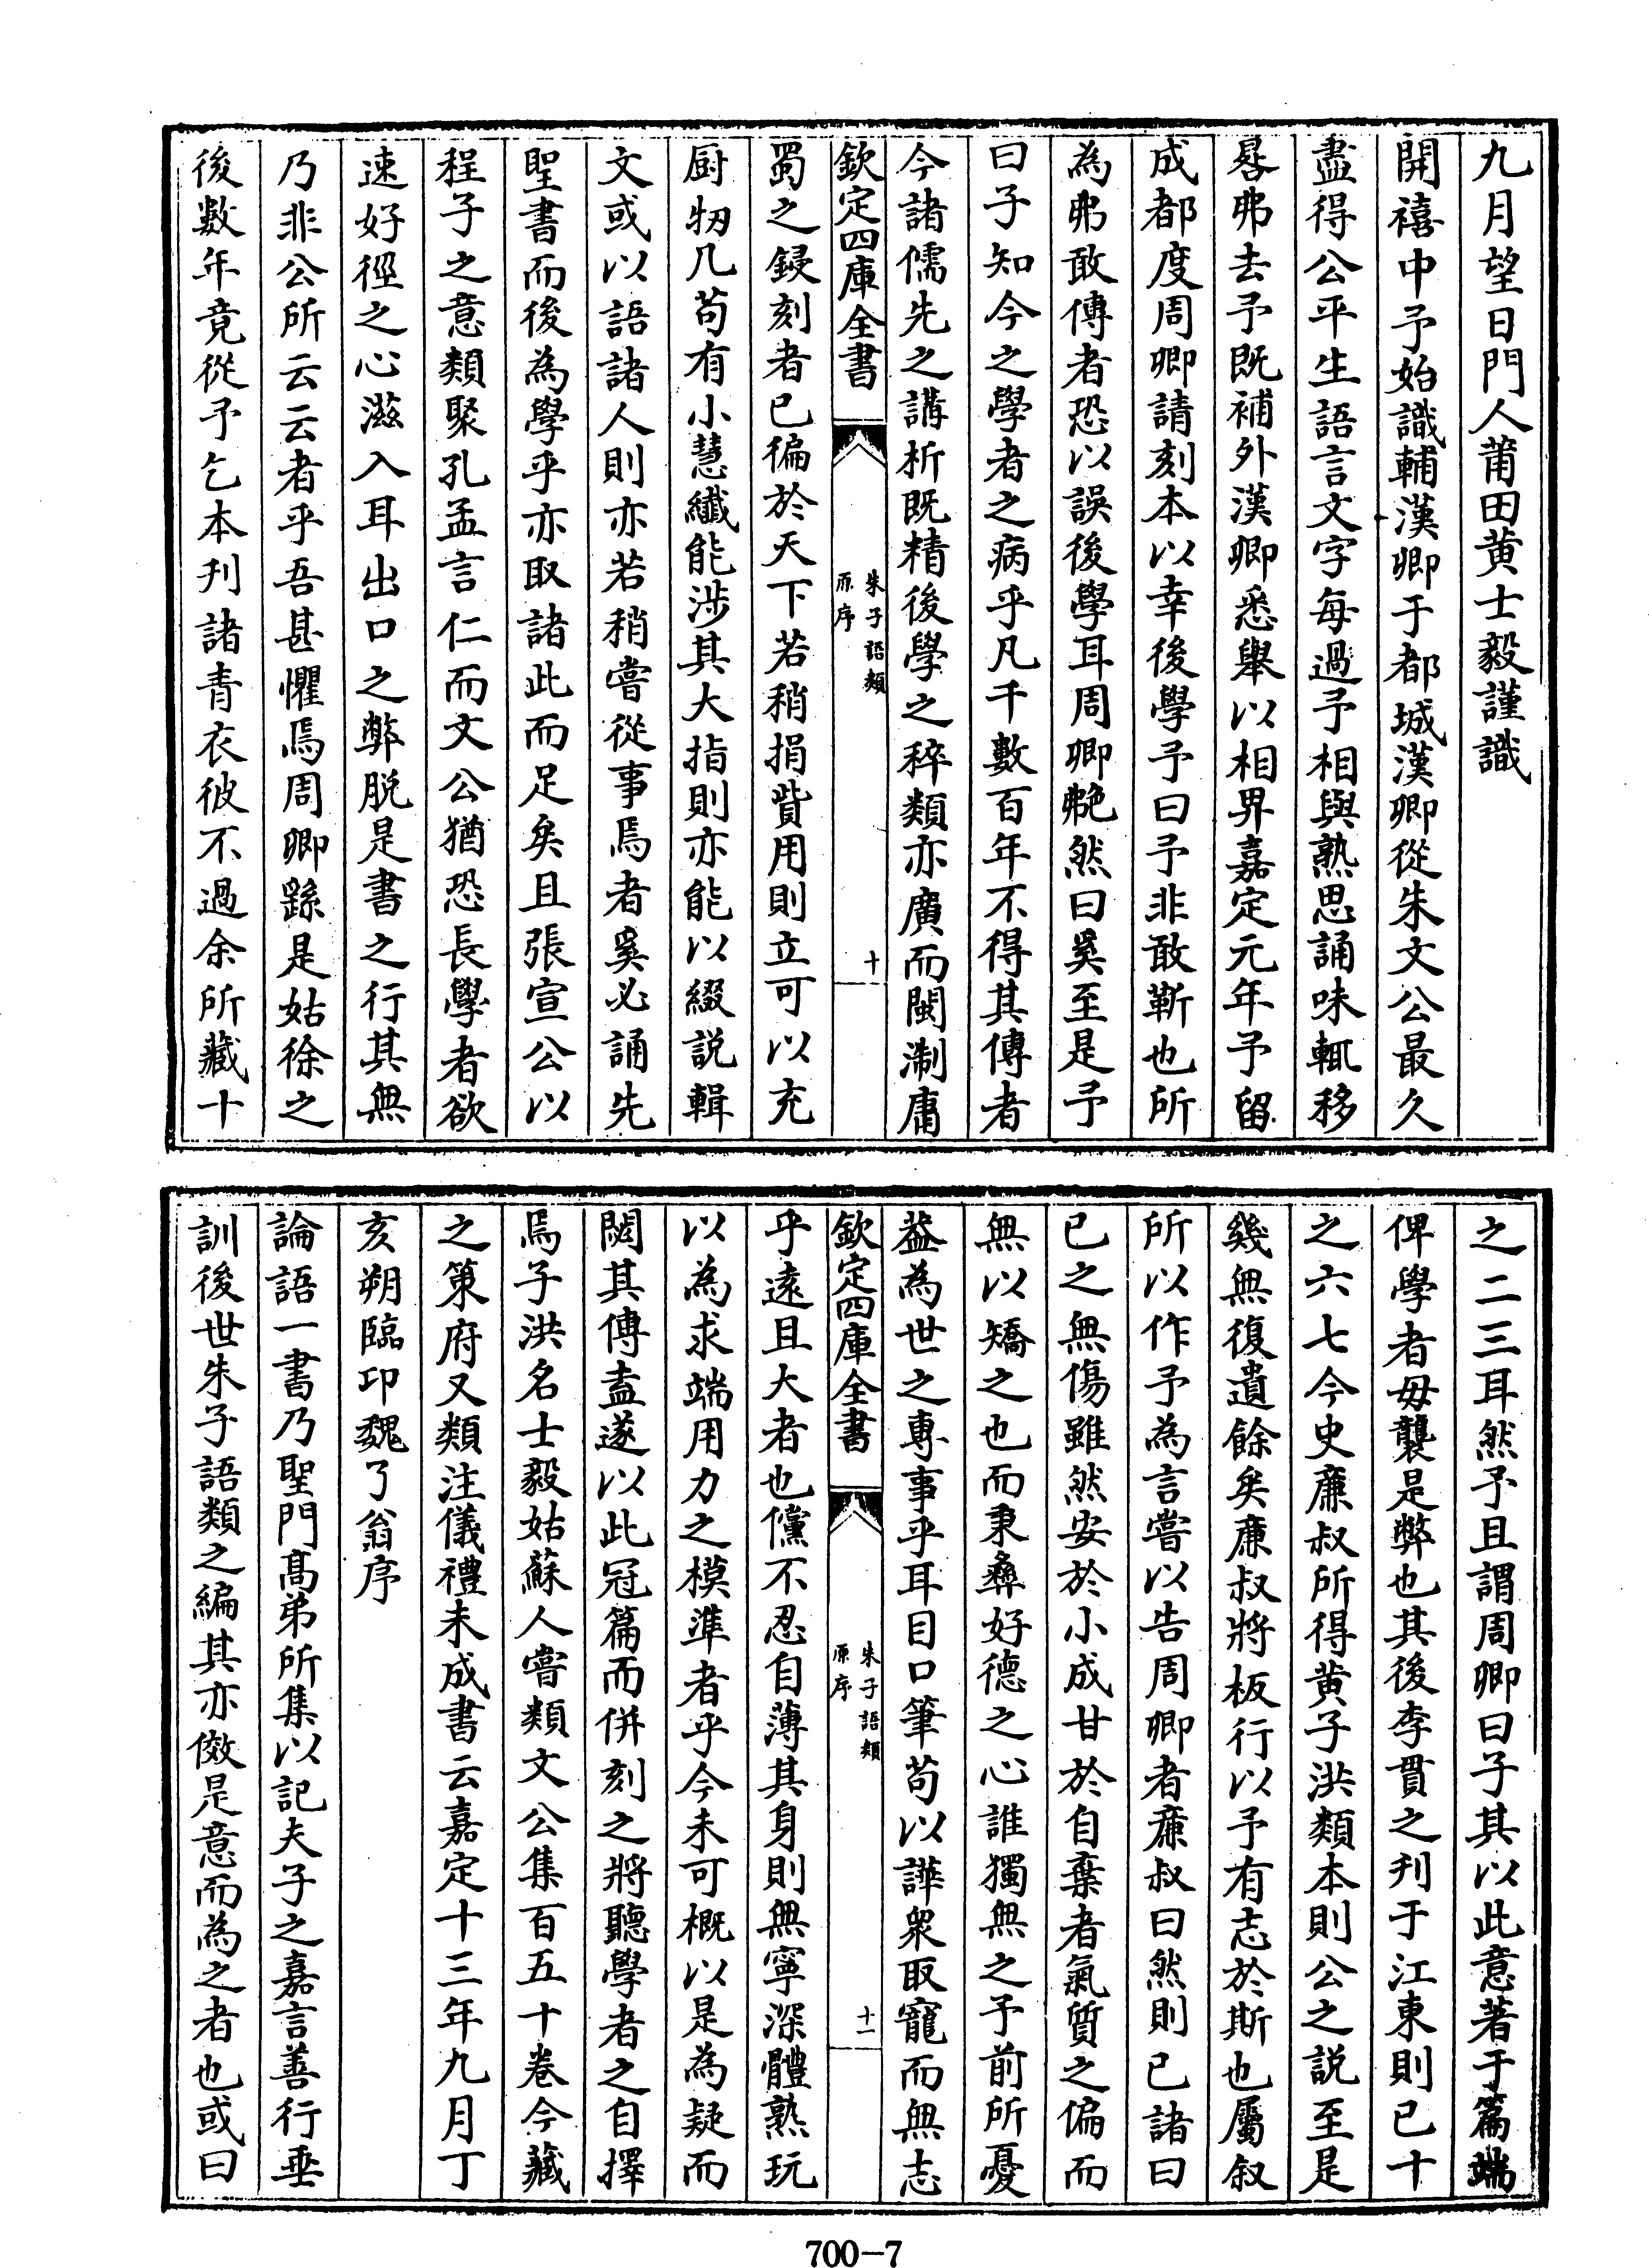 九月望日門人莆田黄士毅謹識
開禧中予始識輔漢卿于都城漢卿從朱文公最久
盡得公平生語言文字每過予相與熟思誦味輒移
晷弗去予既補外漢卿悉舉以相畀嘉定元年予留
成都度周卿請刻本以幸後學予曰予非敢靳也所
為弗敢傳者恐以誤後學耳周卿艴然曰奚至是予
曰子知今之學者之病乎凡千數百年不得其傳者
今諸儒先之講析既精後學之稡類亦廣而閩浙庸
欽定四庫全書
朱子語類
原序
十
蜀之鋟刻者已徧於天下若稍捐貲用則立可以充
厨牣几苟有小慧纖能涉其大指則亦能以綴説輯
文或以語諸人則亦若稍嘗從事焉者奚必誦先
聖書而後為學乎亦取諸此而足矣且張宣公以
程子之意類聚孔孟言仁而文公猶恐長學者欲
速好徑之心滋入耳出口之弊脱是書之行其無
乃非公所云云者乎吾甚懼焉周卿繇是姑徐之
後數年竟從予乞本刋諸青衣彼不過余所藏十
之二三耳然予且謂周卿曰子其以此意著于篇端
俾學者毋襲是弊也其後李貫之刋于江東則已十
之六七今史亷叔所得黄子洪類本則公之説至是
幾無復遺餘矣亷叔將板行以予有志於斯也屬叙
所以作予為言嘗以告周卿者亷叔曰然則已諸曰
已之無傷雖然安於小成甘於自棄者氣質之偏而
無以矯之也而秉彞好德之心誰獨無之予前所憂
葢為世之專事乎耳目口筆苟以譁衆取寵而無志
欽定四庫全書
朱子語類
原序
十一
乎遠且大者也儻不忍自薄其身則無寧深體熟玩
以為求端用力之模準者乎今未可概以是為疑而
閟其傳盍遂以此冠篇而併刻之將聽學者之自擇
焉子洪名士毅姑蘇人嘗類文公集百五十卷今藏
之策府又類注儀禮未成書云嘉定十三年九月丁
亥朔臨卭魏了翁序
論語一書乃聖門高弟所集以記夫子之嘉言善行垂
訓後世朱子語類之編其亦倣是意而為之者也或曰
700-7